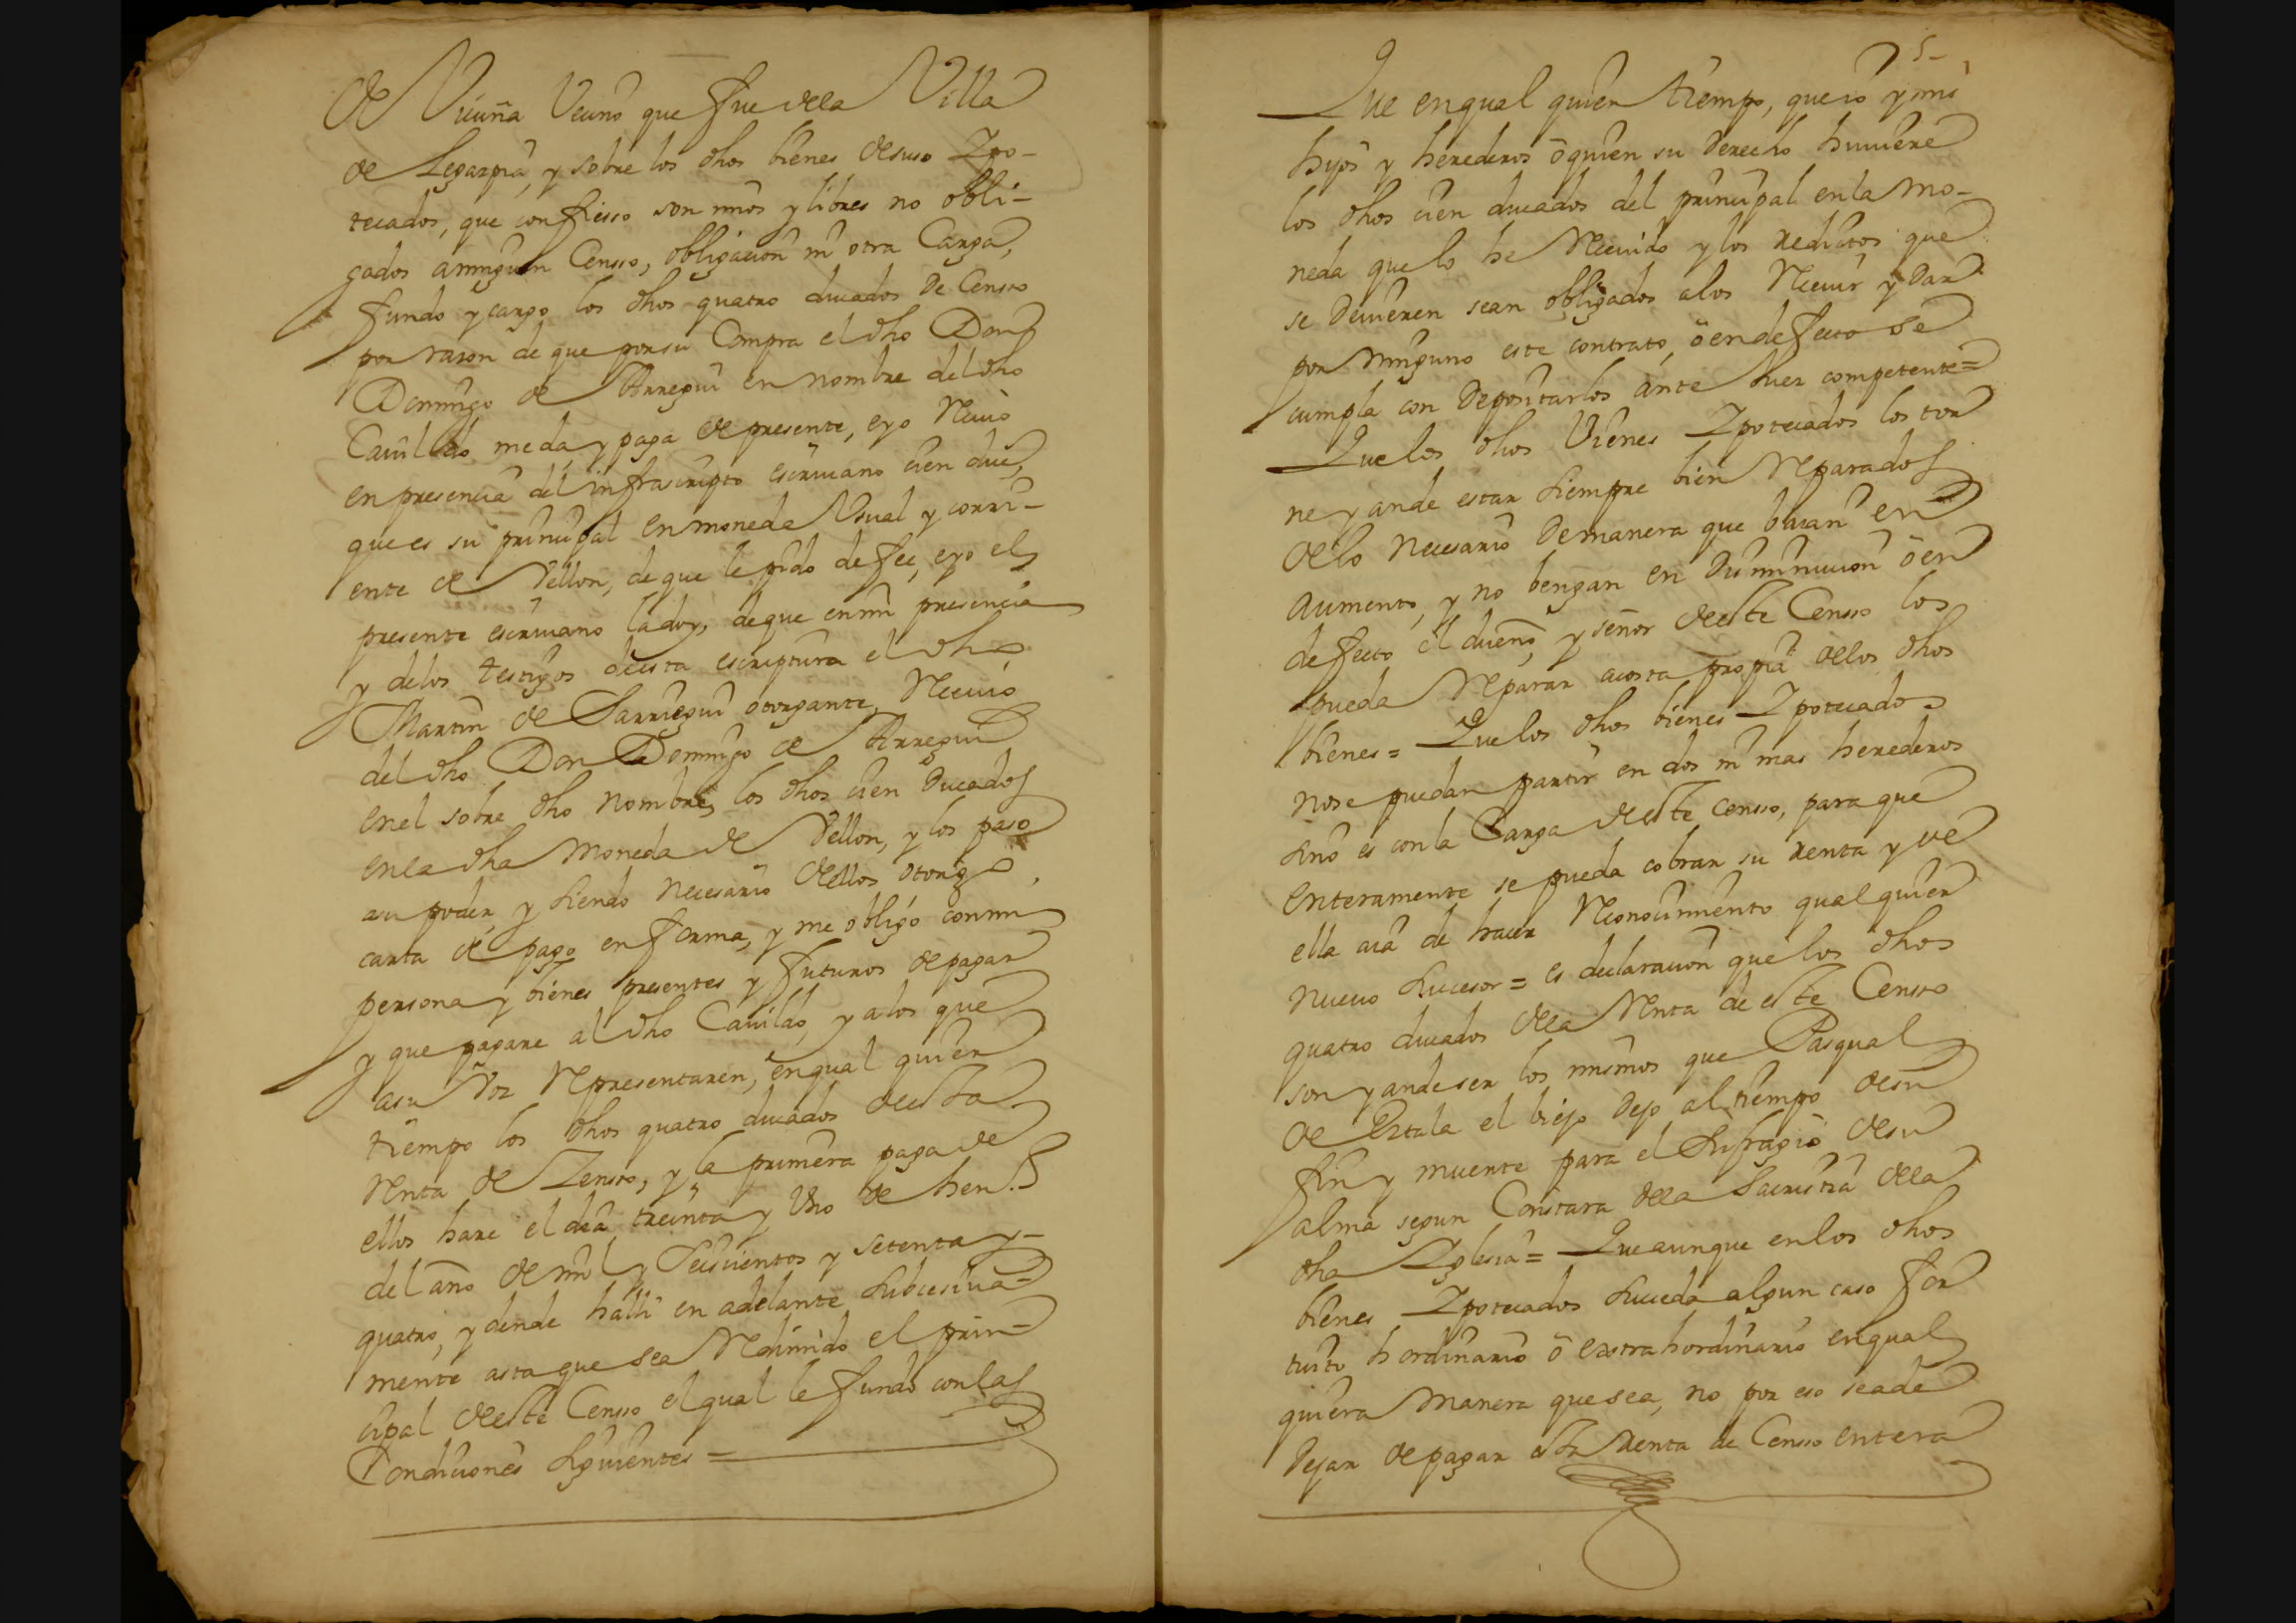 de Vicuña Vecino que fue dela Villa
de Legazpia, y sobre los dhos bienes desuso Ypo-
tecados, que confiesso son mios y libres no obli-
gados aninguin Censso, obligacion ni otra Carga,
fundo y cargo los dhos quatro ducados De Censso
por razon de que por su Compra el dho Don
Domingo de Arregui en nombre del dho
Cavildo me da y paga de presente, eyo Recivo
en presencia del infrascripto escrivano cien duc,
que es su principal en moneda Usual y corri-
ente de Vellon, de que le pido de fee, eyo el
presente escrivano la doy, deque en mi presencia
y delos testigos desta escriptura el dho
Martin de Sarriegui otorgante, Recivio
del dho Don Domingo de Arregui
enel sobre dho nombre, los dhos cien Ducados
en la dha Moneda de Vellon, y los paso
asu poder, y siendo necesario dellos otorgo,
carta de pago en forma, y me obligo con mi
persona y bienes presentes y futuros de pagar
y que pagare al dho Cavildo, y a los que
asu Voz Representaren, en qual quier
tiempo los dhos quatro ducados desta
Renta de Zensso, y la primera paga de
ellos hare el dia treinta y Uno de hen.º
del año de mil y Seiscientos y setenta y-
quatro, y dende halli en adelante subcesiva-
mente asta que sea Redimido el prin-
cipal deeste Censso el qual le fundo con las
Condiciones siguientes =
5-
Que en qual quier tiempo, que io y mis
hijos y herederos ô quien su Derecho huviere
los dhos cien ducados del principal en la mo-
neda que lo he Recivido y los reditos que
se Devieren sean obligados a los Recivir y Dar
por Ninguno este contrato, ô en defecto se
cumpla con Depositarlos ante Juez competente=
Que los dhos Vienes Ypotecados los ten
ne y ande estar siempre bien Reparados
de lo Necesario De manera que baian en
aumento, y no bengan en Disminucion ô en
defecto el dueño, y señor deeste Censso los
pueda Reparar acosta propia delos dhos
bienes = Que los dhos bienes Ypotecados
nose puedan partir en dos ni mas herederos
sino es con la Carga deeste censso, para que
Enteramente se pueda cobrar su renta y de
ella aia de hacer Reconocimiento qual quier
nuevo sucesor = es declaracion que los dhos
quatro ducados dela Renta de este Censso
son y ande ser los mismos que Pasqual
de Eztala el biejo Dejo al tiempo desu
fin y muerte para el Sufragio desu
alma segun Constara dela Sacristia dela
dha Yglesia = Que aunque en los dhos
bienes Ypotecados suceda algun caso for
tuito hordinario ô extrahordinario en qual
quiera Manera que sea, no por eso sea de
Dejar de pagar esta Renta de Censso entera